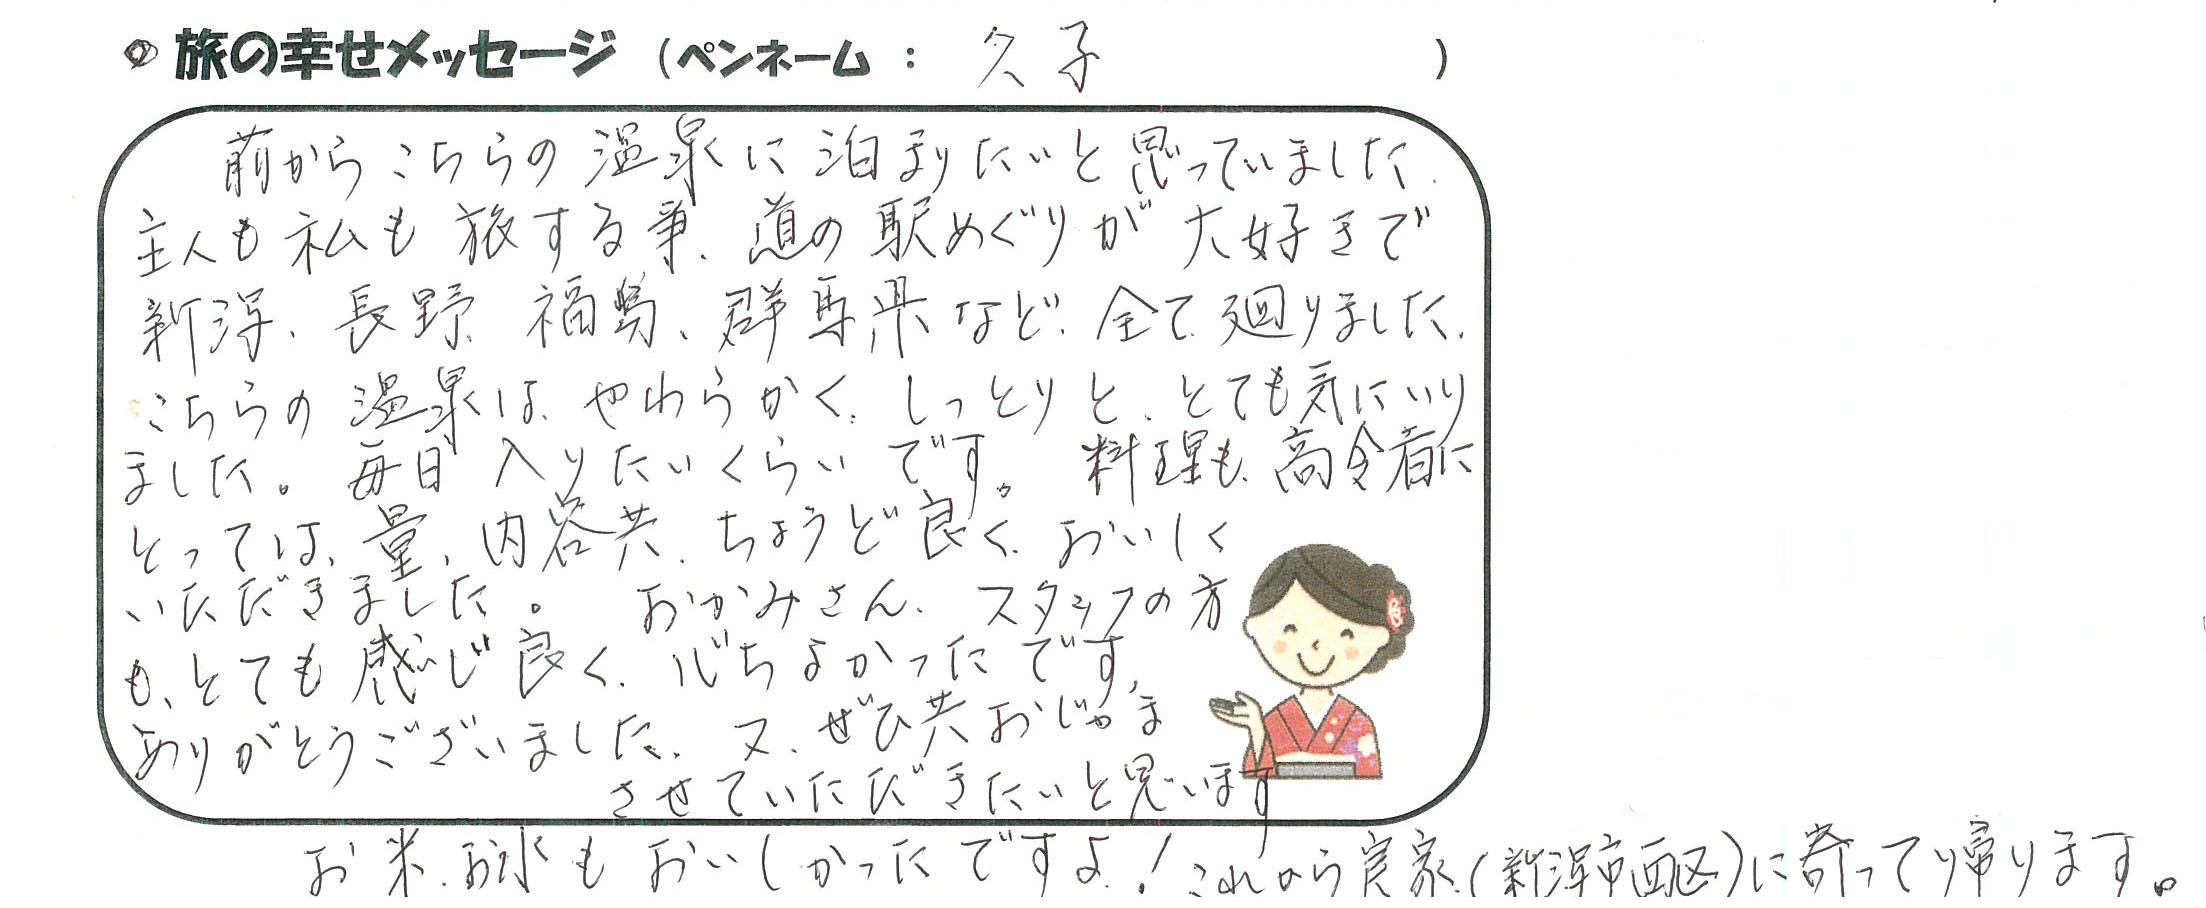 旅の幸せメッセージ (ペンネーム : 久子 )
前からこちらの温泉に泊まりたいと思っていました.
主人も私も旅する事、道の駅めぐりが大好きで
新潟、長野、福島、群馬県など、全て廻りました.
こちらの温泉は、やわらかく、しっとりと、とても気にいり
ました。毎日入りたいくらいです。料理も、高令者に
とっては、量、内容共、ちょうど良く、おいしく
いただきました。おかみさん、スタッフの方
も、とても感じ良く、心ちよかったです,
ありがとうございました。又、ぜひ共おじゃま
させていただきたいと思います
お米、お水もおいしかったですよ!これから実家(新潟市西区)に寄って帰ります。